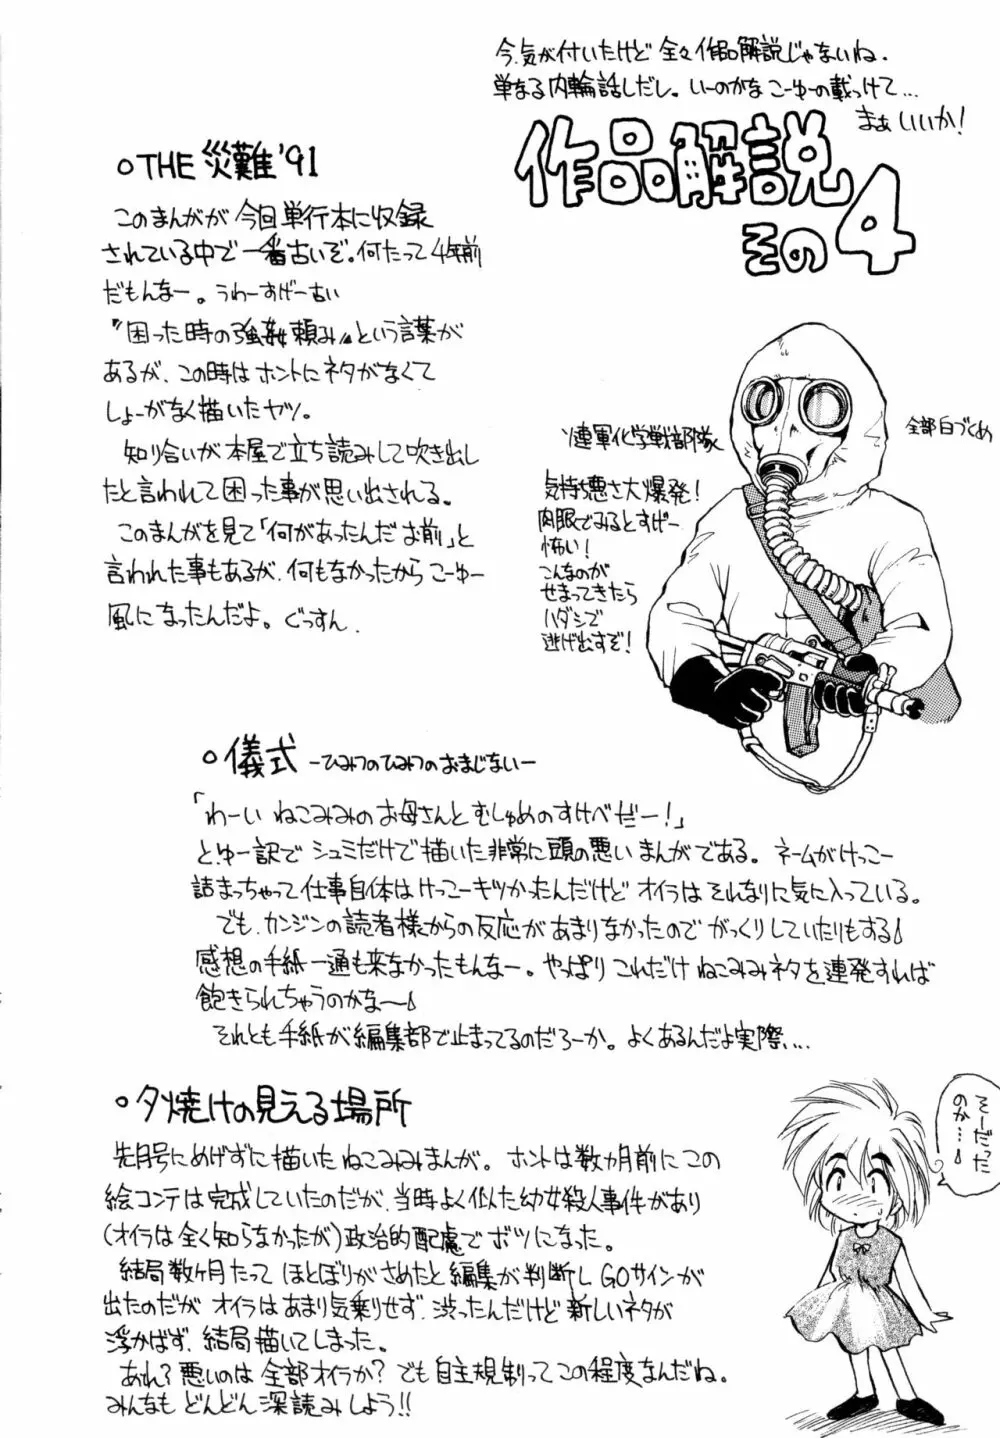 今、気が付いたけど 全々作品解説じゃないね。
単なる内輪話しだし。いーのかな こーゆーの載っけて…
まぁいいか！
作品解説
その4
○THE 災難'91
このまんがが今回単行本に収録
されている中で一番古いぞ。何たって4年前
だもんなー。うわーすげー古い
〝困った時の強姦頼み〟という言葉が
あるが、この時はホントにネタがなくて
しょーがなく描いたヤツ。
知り合いが本屋で立ち読みして吹き出し
たと言われて困った事が思い出される。
このまんがを見て「何があったんだお前」と
言われた事もあるが、何もなかったからこーゆー
風になったんだよ。ぐっすん。
ソ連軍化学戦部隊
全部白づくめ
気持ち悪さ大爆発！
肉眼でみるとすげー
怖い！
こんなのが
せまってきたら
ハダシで
逃げ出すぞ！
○儀式 －ひみつのひみつのおまじない－
「わーい ねこみみのお母さんとむしゅめのすけべだー！」
とゆー訳でシュミだけで描いた非常に頭の悪いまんがである。ネームがけっこー
詰まっちゃって仕事自体はけっこーキツかったんだけど オイラはそれなりに気に入っている。
でも、カンジンの読者様からの反応があまりなかったので がっくりしていたりもする
感想の手紙一通も来なかったもんなー。やっぱり これだけ ねこみみネタを連発すれば
飽きられちゃうのかな〜
それとも手紙が編集部で止まってるのだろーか。よくあるんだよ実際…
○夕焼けの見える場所
先月号にめげずに描いたねこみみまんが。ホントは数カ月前にこの
絵コンテは完成していたのだが、当時よく似た幼女殺人事件があり
(オイラは全く知らなかったが)政治的配慮でボツになった。
結局数ヶ月たって ほとぼりがさめたと編集が判断しGOサインが
出たのだが オイラはあまり気乗りせず、渋ったんだけど新しいネタが
浮かばず、結局描いてしまった。
あれ？悪いのは全部オイラか？でも自主規制ってこの程度なんだね。
みんなもどんどん深読みしよう!!
そーだった
のか…